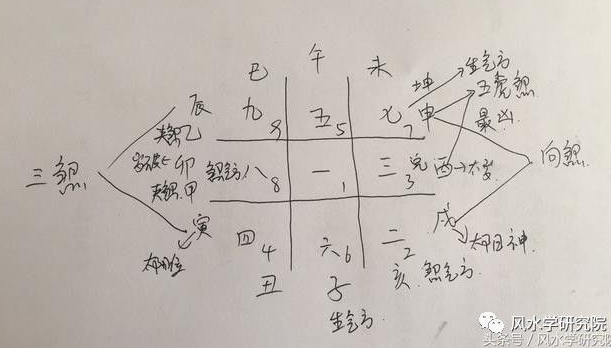 巳 午 未 坤 生气方
辰 九 9 五 5 七 7 申 五虎煞
最凶
夹煞乙
三煞 岁破 卯 煞气方 八 8 一 1 三 3 兑 酉 太岁 向煞
夹煞甲
寅 四 4 六 6 二 2 戌
丑 子 亥 煞气方
生气方
风水学研究院
头条号 / 风水学研究院